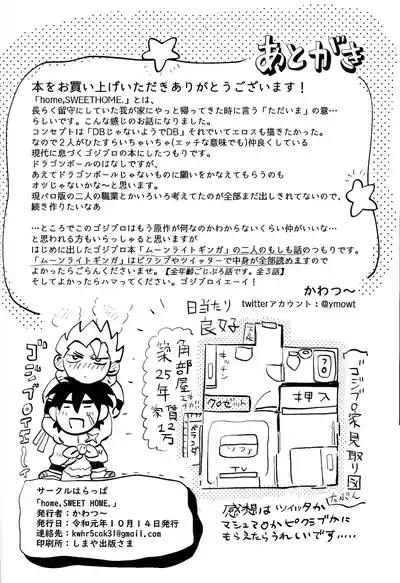 あとがき
本をお買い上げいただきありがとうございます！
「home,SWEETHOME.」とは、
長らく留守にしていた我が家にやっと帰ってきた時に言う「ただいま」の意…
らしいです。こんな感じのお話になりました。
コンセプトは「DBじゃないようでDB」それでいてエロスも描きたかった。
なので2人がひたすらいちゃいちゃ(エッチな意味でも)仲良くしている
現代に息づくゴジブロの本にしたつもりです。
ドラゴンボールのはなしですが、
あえてドラゴンボールじゃないものに願いをかなえてもらうのも
オツじゃないかな～と思います。
現パロ版の二人の職業とかいろいろ考えてたのが全部まだ出しきれてないので、
続き作りたいなあ
…ところでこのゴジブロはもう原作が何なのかわからないくらい仲がいいな…
と思われる方もいらっしゃると思いますが
はじめに出したゴジブロ本「ムーンライトギンガ」の二人のもしも話のつもりです。
「ムーンライトギンガ」はピクシブやツイッターで中身が全部読めますので
よかったらごらんくださいませ。【全年齢ごじぶろ話です。全3話】
そしてよかったらハマってください。ゴジブロイエーイ！
かわつ～
twitterアカウント：@ymowt
日当たり
良好
角部屋
築25年
家賃12万
キッチン
クロゼット
押入
ベランダ
ソファ
TV
ゴジブロ家見取り図
たぶん
ゴジブロイエーイ
感想はツイッタか
マシュマロかピクシブかに
もらえたらうれしいです……
サークルはらっぱ
「home,SWEET HOME.」
発行者：かわつ～
発行日：令和元年10月14日発行
連絡先：kwhr5cok3l@gmail.com
印刷所：しまや出版さま